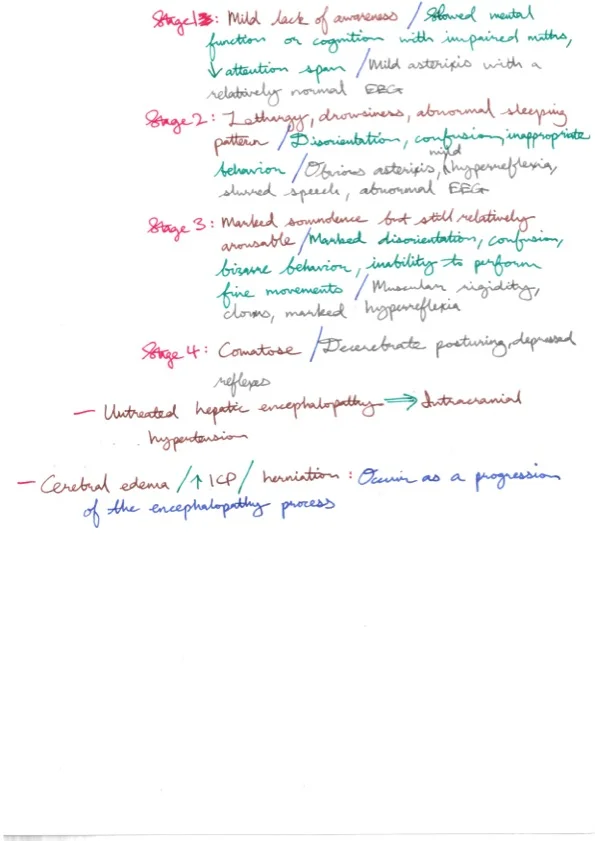 Stage 1: Mild lack of awareness / Slowed mental
function or cognition with impaired maths,
↓ attention span / Mild asterixis with a
relatively normal EEG
Stage 2: Lethargy, drowsiness, abnormal sleeping
pattern / Disorientation, confusion, inappropriate
behavior / Obvious asterixis, mild hyperreflexia,
slurred speech, abnormal EEG
Stage 3: Marked somnolence but still relatively
arousable / Marked disorientation, confusion,
bizarre behavior, inability to perform
fine movements / Muscular rigidity,
clonus, marked hyperreflexia
Stage 4: Comatose / Decerebrate posturing, depressed
reflexes
— Untreated hepatic encephalopathy ⇒ Intracranial
hypertension
— Cerebral edema / ↑ ICP / herniation: Occur as a progression
of the encephalopathy process